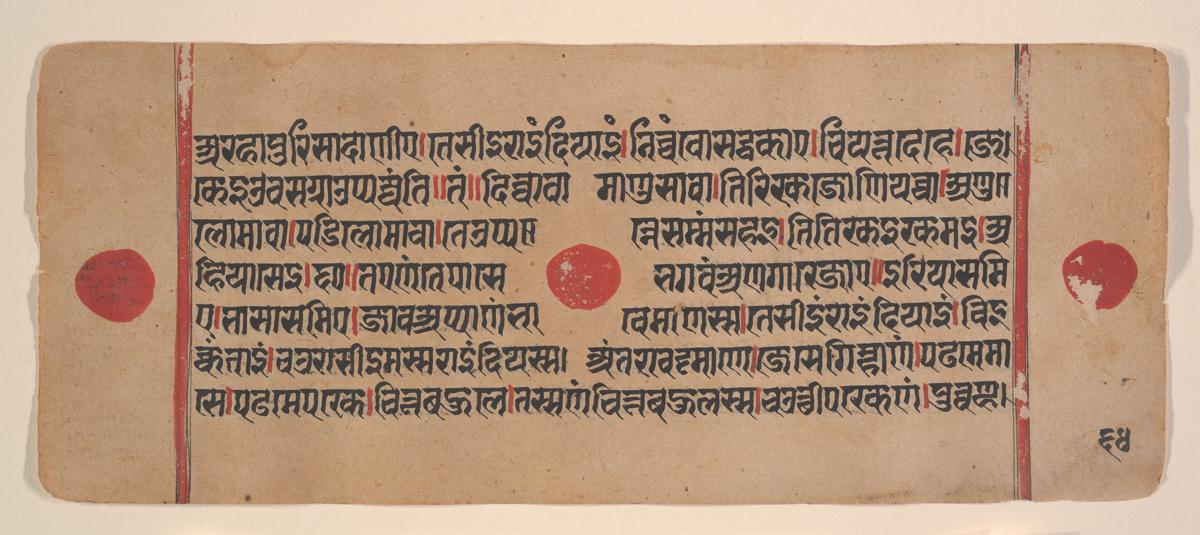 अरहा पुरिसादाणीए।तेसीइं राइंदियाइं।निच्चं वोसट्ठकाए।चियत्तदेहे।जे
केइ उवसग्गा उप्पज्जंति॥तं॥दिव्वा वा माणुसा वा।तिरिक्खजोणिया वा।अणु॥
लोमा वा।पडिलोमा वा।ते उप्प॥न्ने सम्मं सहइ।तितिक्खइ खमइ।अ
हियासेइ।     तए णं से पासे भगवं अणगारे जाए॥इरियासमि
ए।भासासमिए।जाव अप्पाणं भावेमाणस्स।तेसीइं राइंदियाइं।विइ
क्कंताइं।चउरासीइमस्स राइंदियस्स।अंतरा वट्टमाणे।जे से गिम्हाणं।पढमे मा
से।पढमे पक्खे।चित्तबहुले।तस्स णं चित्तबहुलस्स।चउत्थीपक्खेणं।पुव्वण्ह।
६४